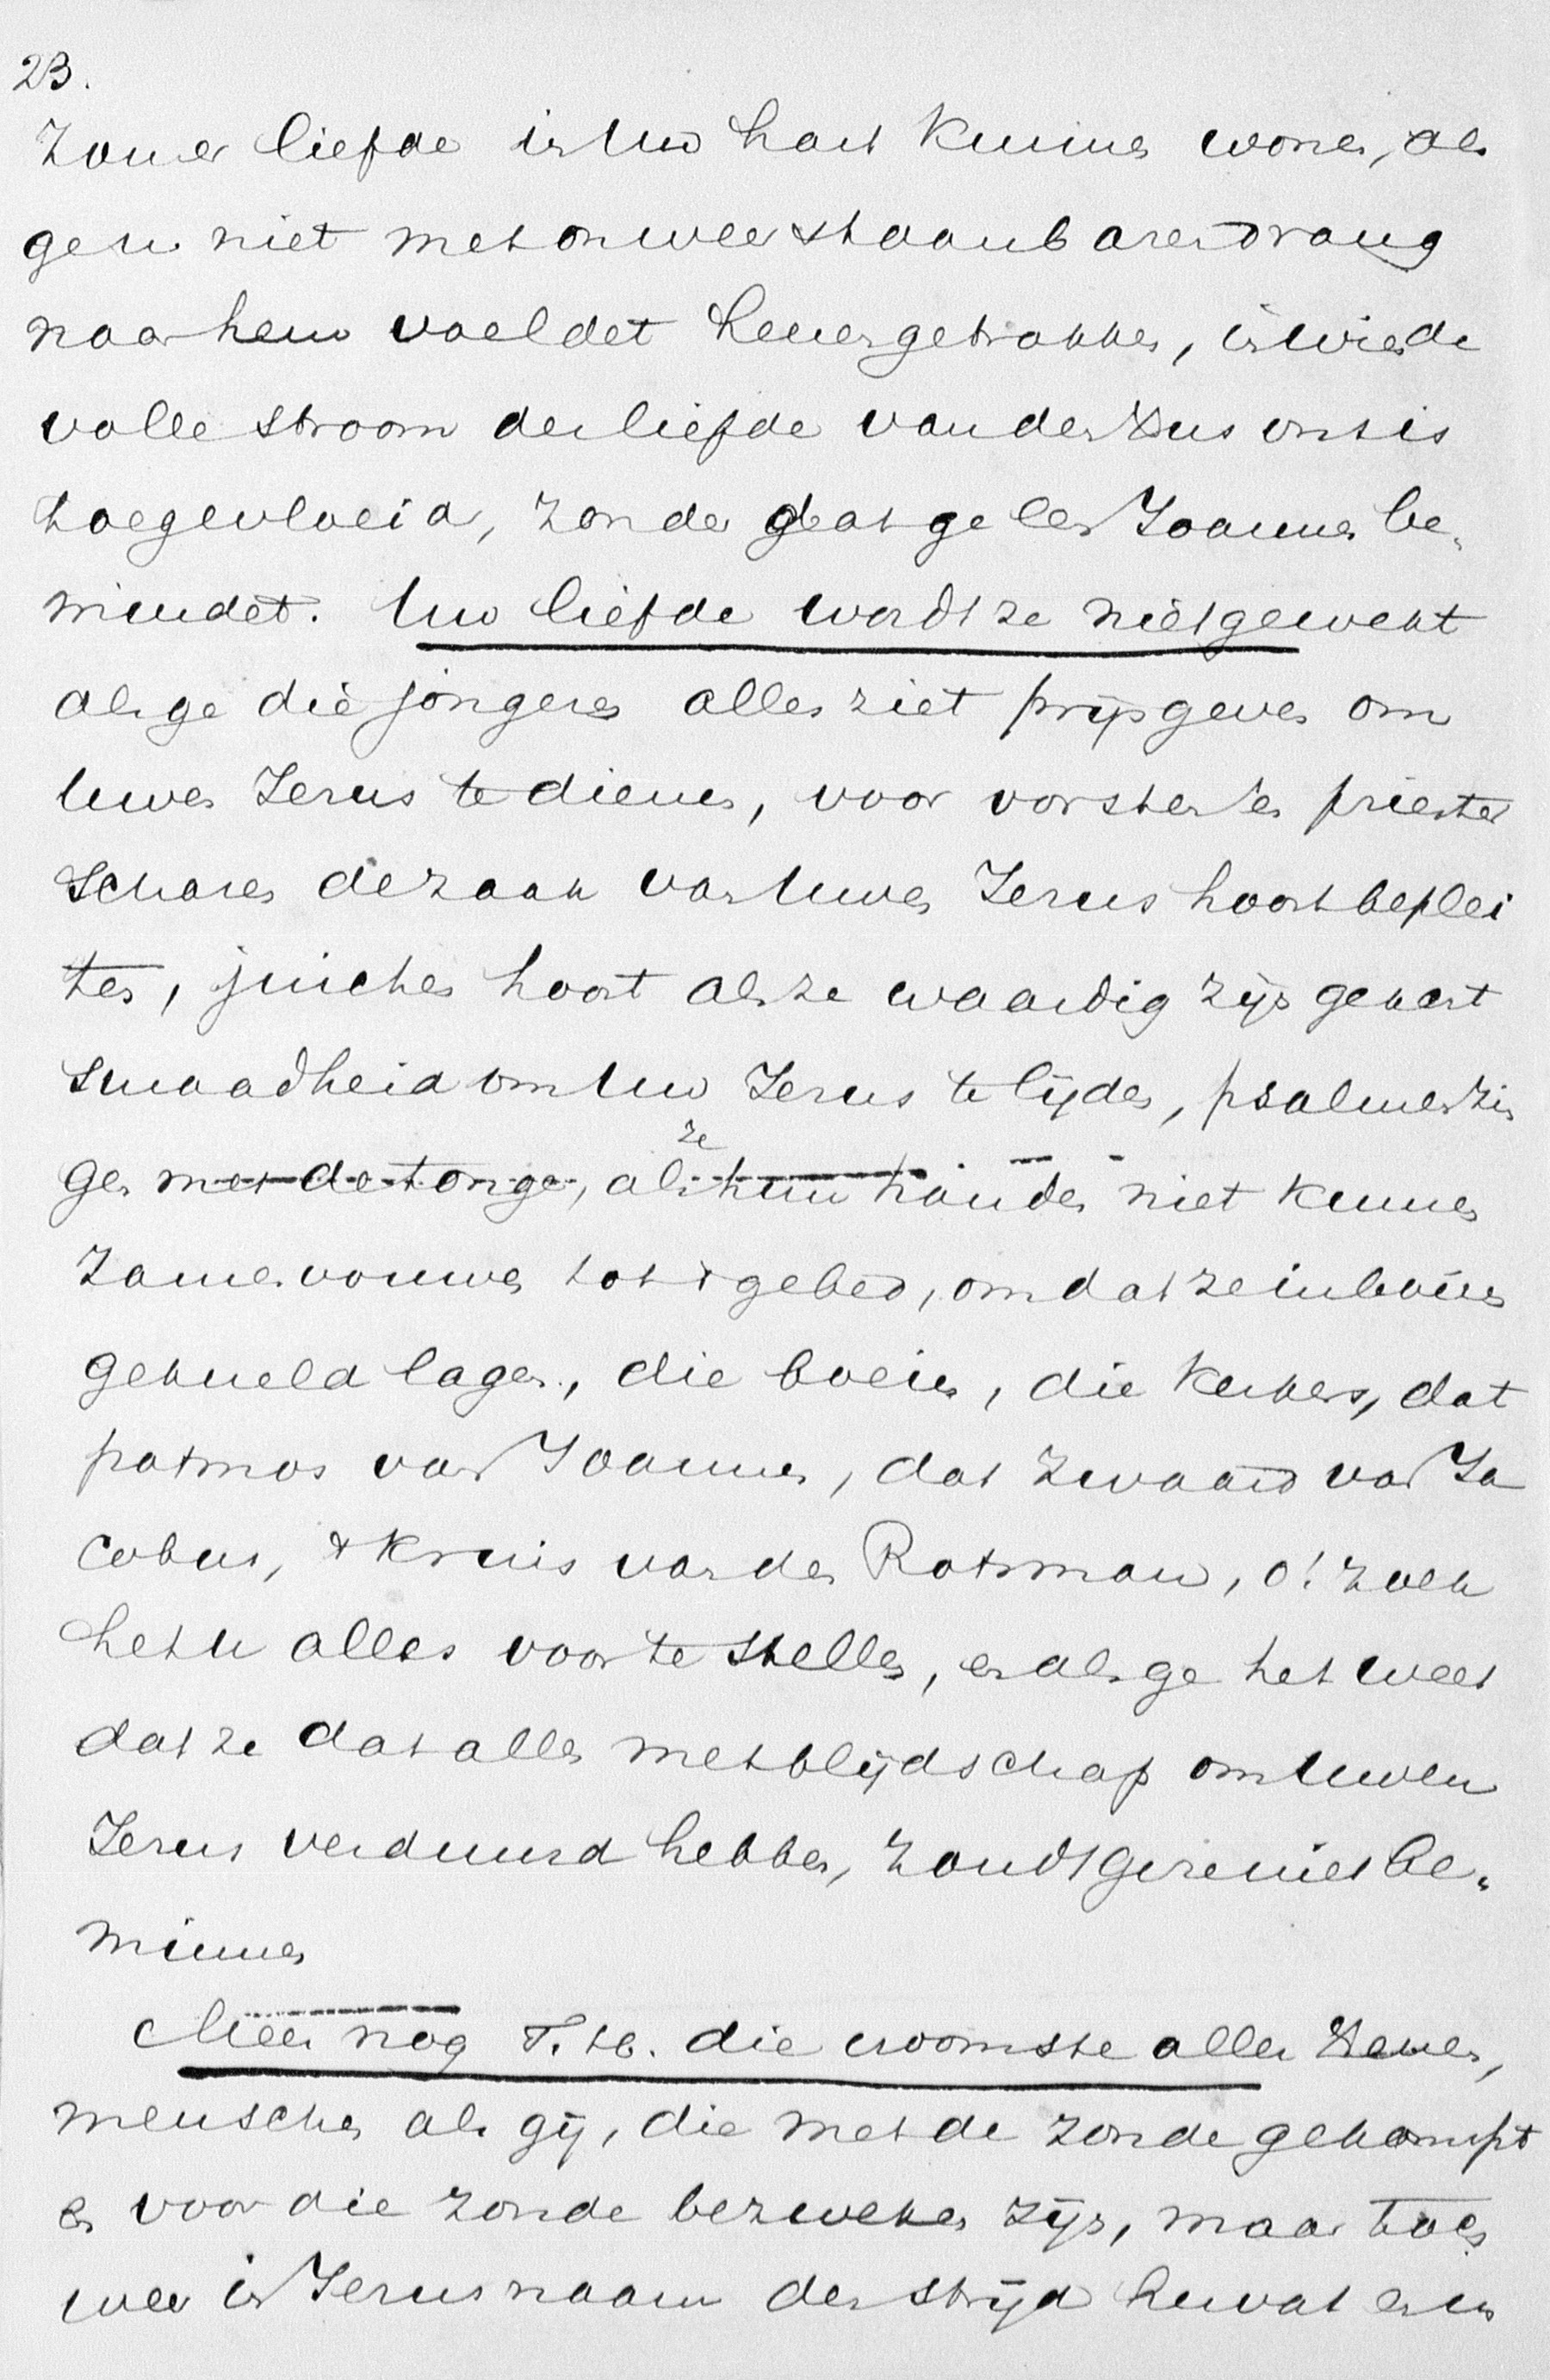 23.
Zou er liefde in Uw hart kunnen wonen, als
ge u niet met onweerstaanbaren drang
naar hem voeldet henengetrokken, in wien de
volle stroom der liefde van den Zus ons is
toegevloeid, zonder dat ge een Joannes be-
mindet. Uw liefde wordt ze niet gewekt
als ge die jongeren alles ziet prijsgeven om
Uwen Jezus te dienen, voor vorsten en priester
scharen de zaak van Uwen Jezus hoort beplei
ten, juichen hoort als ze waardig zijn gekeurt
smaadheid om Uw Jezus te lijden, psalmen zin
gen met de tonge, als ze hun handen niet kunnen
zamenvouwen tot 't gebed, omdat ze in boeien
gekneld lagen, die boeien, die kerkers, dat
patmos van Joannes, dat zwaard van Ja
cobus, 't kruis van den Rotsman, o! zoek
het u alles voor te stellen, en als ge het weet
dat ze dat alles met blijdschap om Uwen
Jezus verduurd hebben, zoudt ge ze niet be-
minnen
Meer nog T. H. die vroomste aller eeuwen,
menschen als gij, die met de zonde gekampt
en voor die zonde bezweken zijn, maar toen
weer in Jezus naam den strijd hervat en in